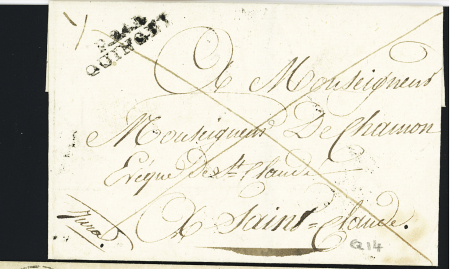 QUINGEY
A Monseigneur
Monseigneur De Chamon
Evêque de St. Claude
Jura.
A Saint=Claude.
Q14